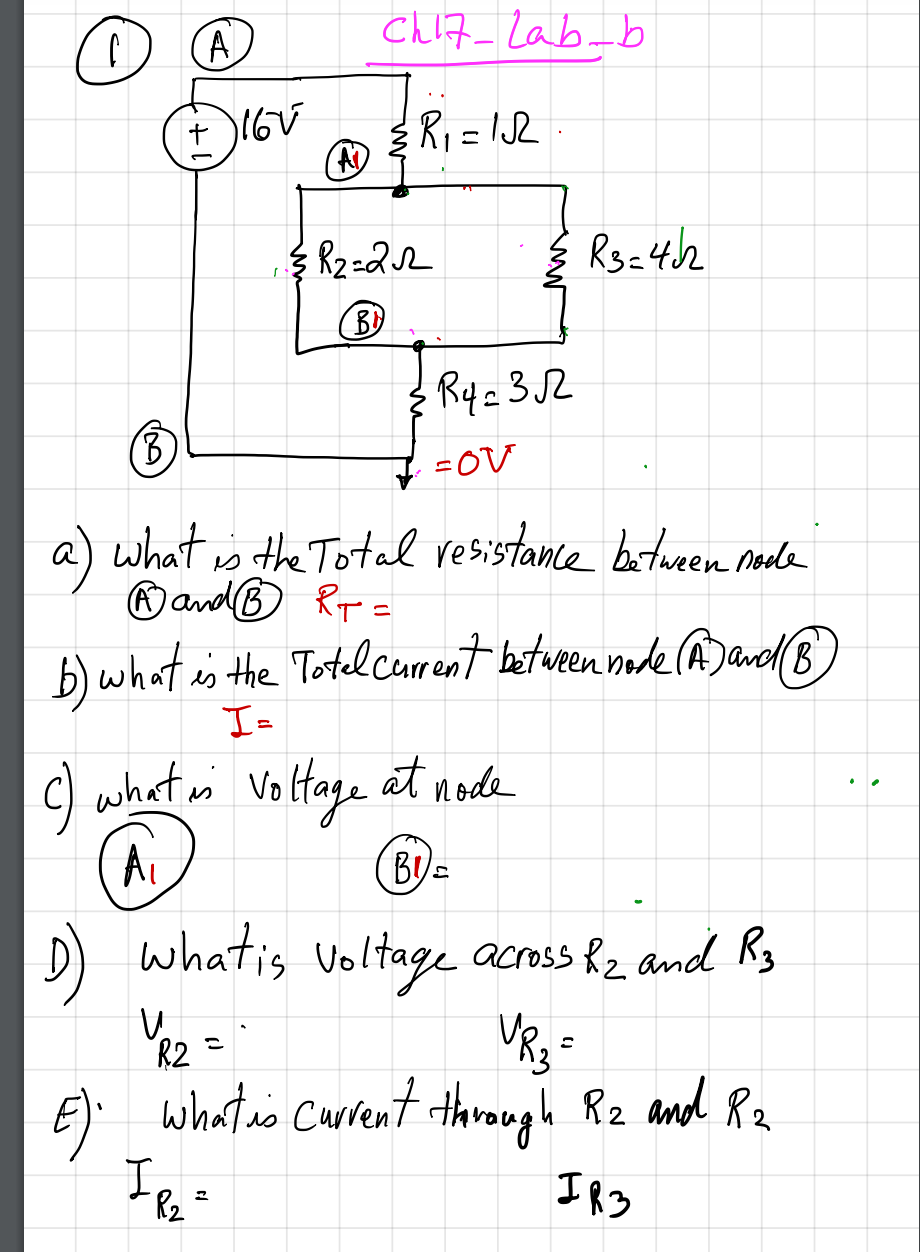 Ch17_Lab_b
1
A
+
-
16V
R1 = 1Ω
A1
R2=2Ω
R3=4Ω
B1
R4= 3Ω
B
=0V
a) what is the Total resistance between node
A and B RT =
b) what is the Total current between node A and B
I=
C) what is Voltage at node
A1 B1 =
D) what is voltage across R2 and R3
VR2 = VR3 =
E) what is current through R2 and R2
IR2 = IR3